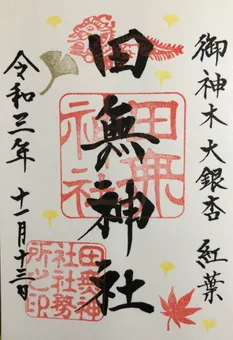 御神木 大銀杏 紅葉
田無神社
田無神社
令和三年 十一月十三日
田無神
社社務
所之印